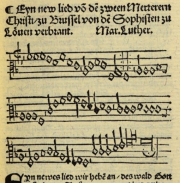 ¶ Eyn new lied vō dē zween Merterern
Christi zu Brussel von dē Sophisten zu
Löuen verbrant. Mar. Luther.
Eyn newes lied wir hebē an / des wald Gott